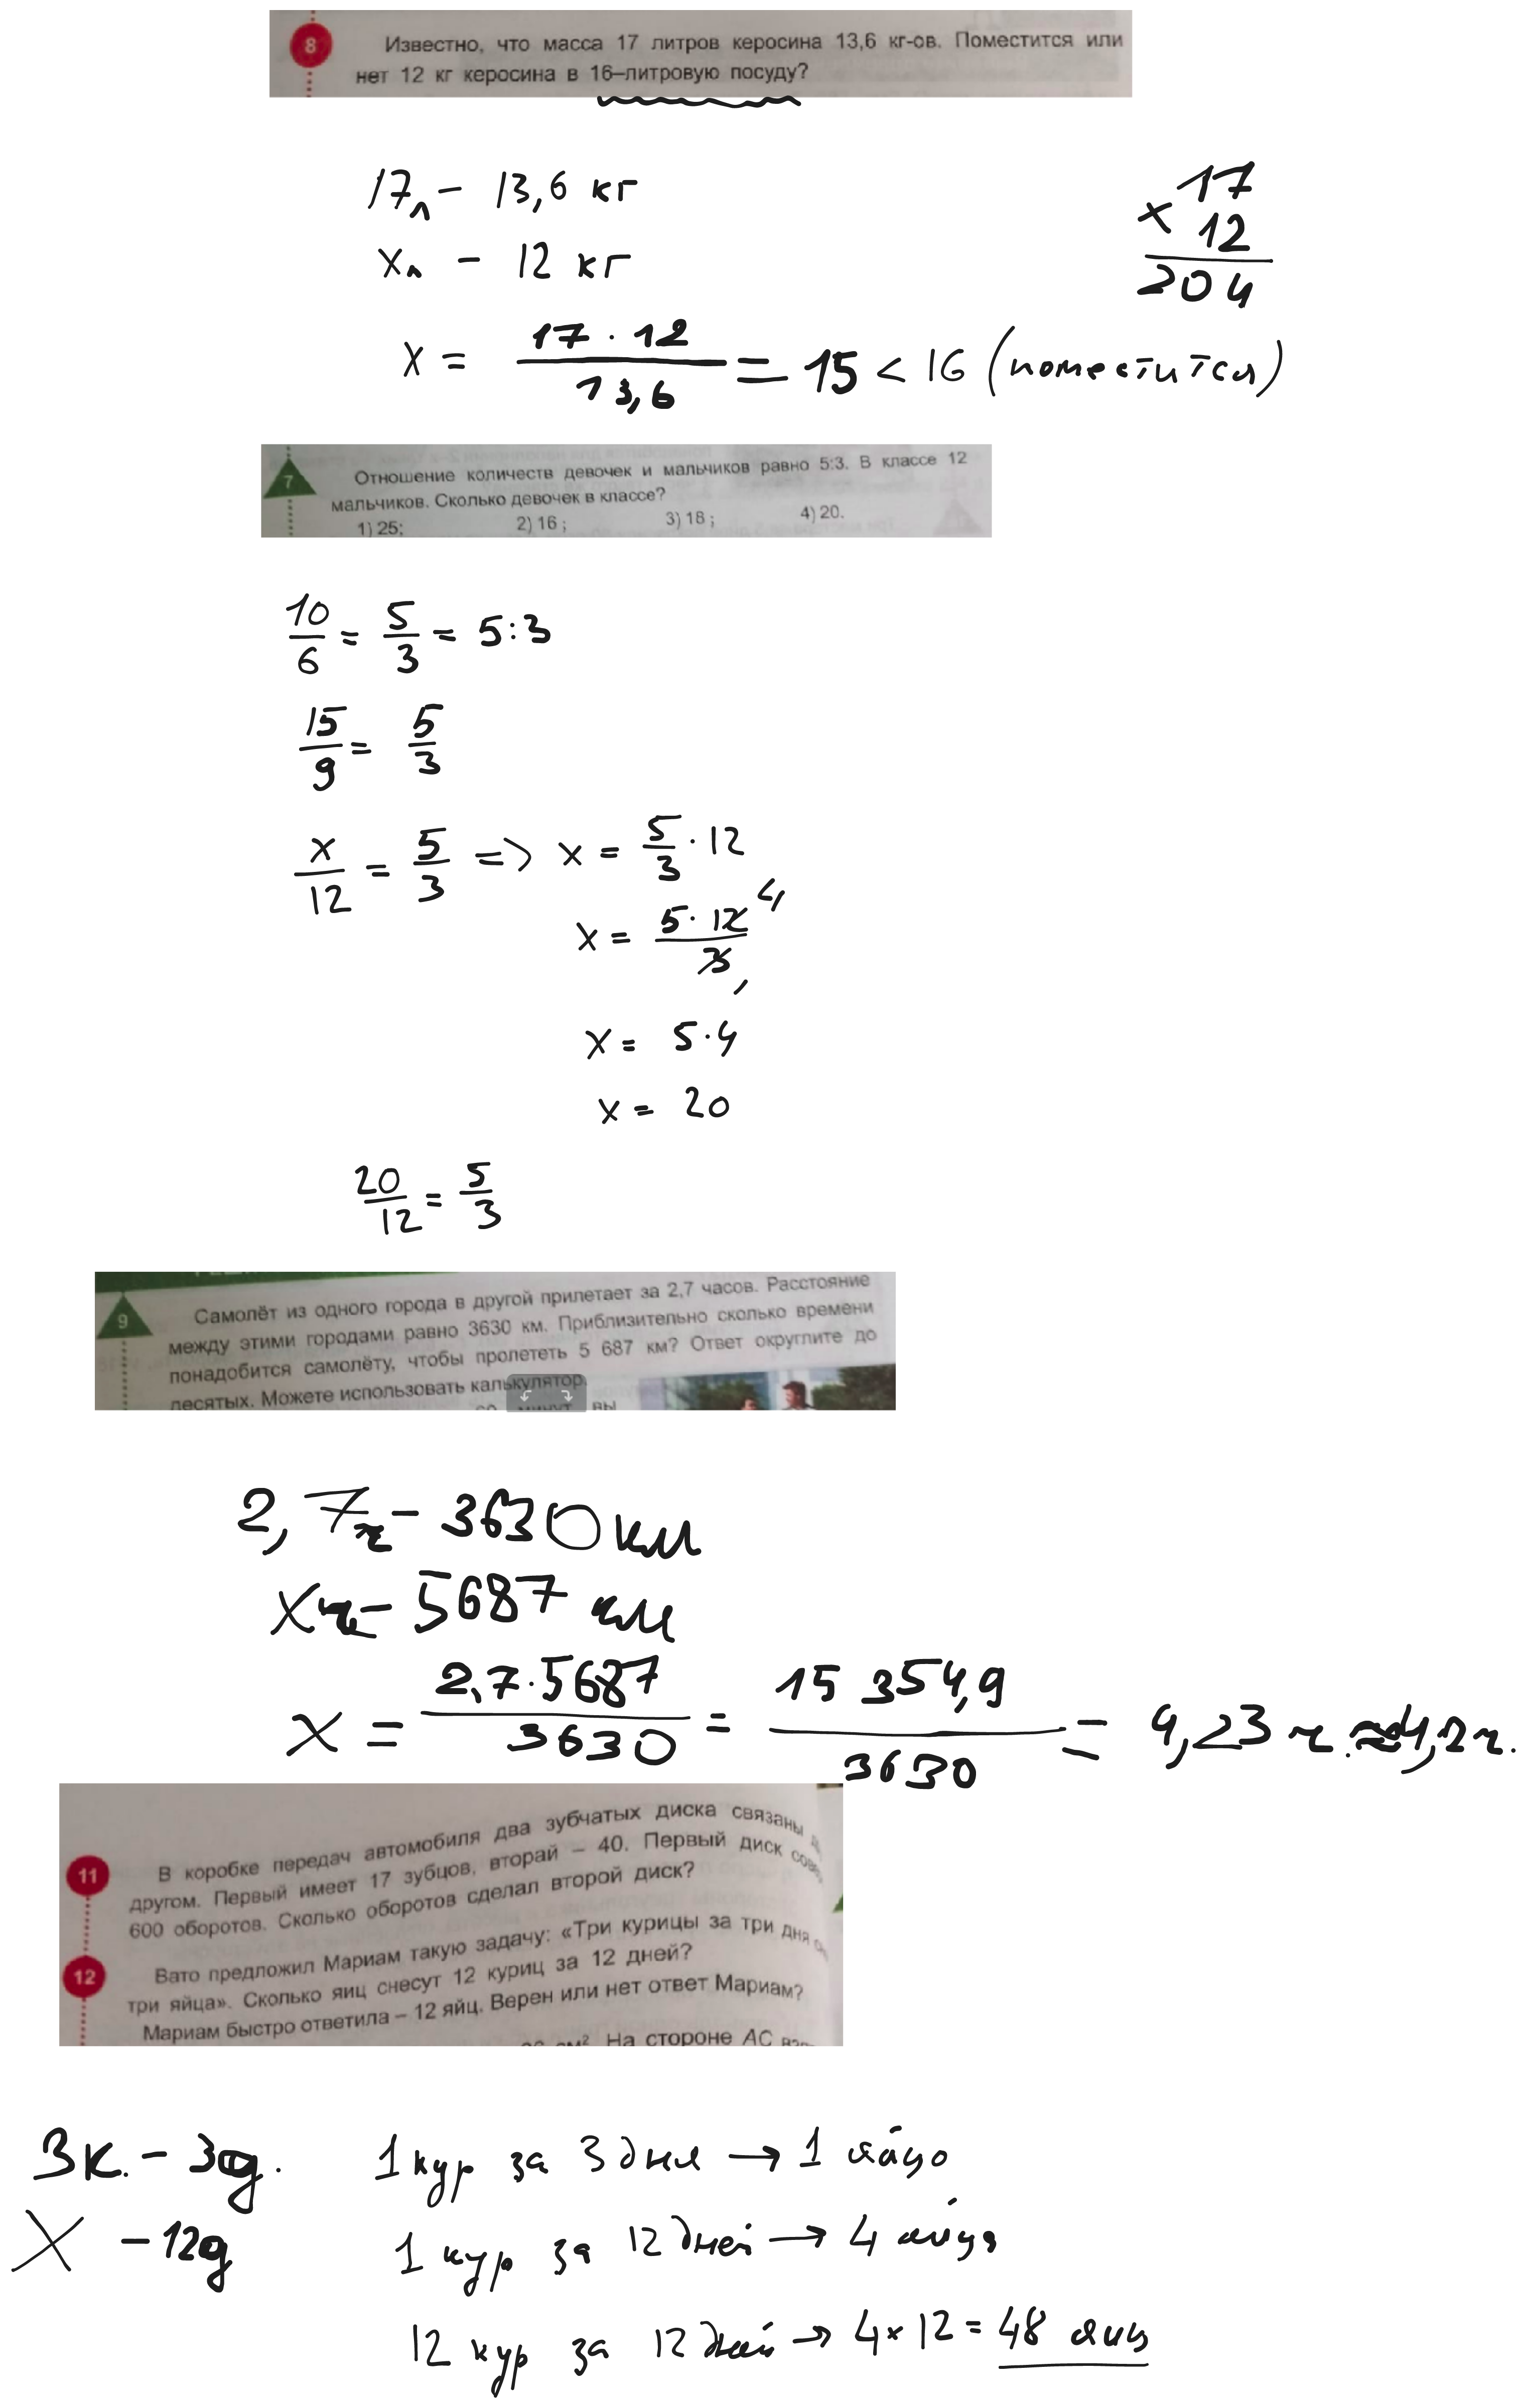 8
Известно, что масса 17 литров керосина 13,6 кг-ов. Поместится или
нет 12 кг керосина в 16–литровую посуду?
17л – 13,6 кг
xл – 12 кг
17
× 12
204
x = 17 · 12 / 13,6 = 15 < 16 (поместится)
7
Отношение количеств девочек и мальчиков равно 5:3. В классе 12
мальчиков. Сколько девочек в классе?
1) 25; 2) 16 ; 3) 18 ; 4) 20.
10/6 = 5/3 = 5:3
15/9 = 5/3
x/12 = 5/3 => x = 5/3 · 12
x = 5 · 12 4 / 3
x = 5 · 4
x = 20
20/12 = 5/3
9
Самолёт из одного города в другой прилетает за 2,7 часов. Расстояние
между этими городами равно 3630 км. Приблизительно сколько времени
понадобится самолёту, чтобы пролететь 5 687 км? Ответ округлите до
десятых. Можете использовать калькулятор.
вы
2,7ч – 3630 км
xч – 5687 км
x = 2,7 · 5687 / 3630 = 15 354,9 / 3630 = 4,23 ч. ≈ 4,2 ч.
11
В коробке передач автомобиля два зубчатых диска связаны
другом. Первый имеет 17 зубцов, вторай – 40. Первый диск
600 оборотов. Сколько оборотов сделал второй диск?
12
Вато предложил Мариам такую задачу: «Три курицы за три дня
три яйца». Сколько яиц снесут 12 куриц за 12 дней?
Мариам быстро ответила – 12 яйц. Верен или нет ответ Мариам?
см². На стороне AC
3к. – 3д.
X – 12д
1 кур за 3 дня → 1 яйцо
1 кур за 12 дней → 4 яйца
12 кур за 12 дней → 4 × 12 = 48 яиц